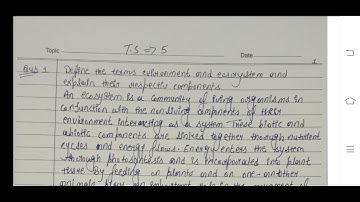 Topic T.S => 5 Date
1
Ques 1 Define the terms environment and ecosystem and
explain their respective components
An ecosystem is a community of living organisms in
conjunction with the nonliving components of their
environment interacting as a system. These biotic and
abiotic components are linked together through nutrient
cycles and energy flows. Energy enters the system
through photosynthesis and is incorporated into plant
tissue By feeding on plants and on one-another
animals play an important role in the movement of